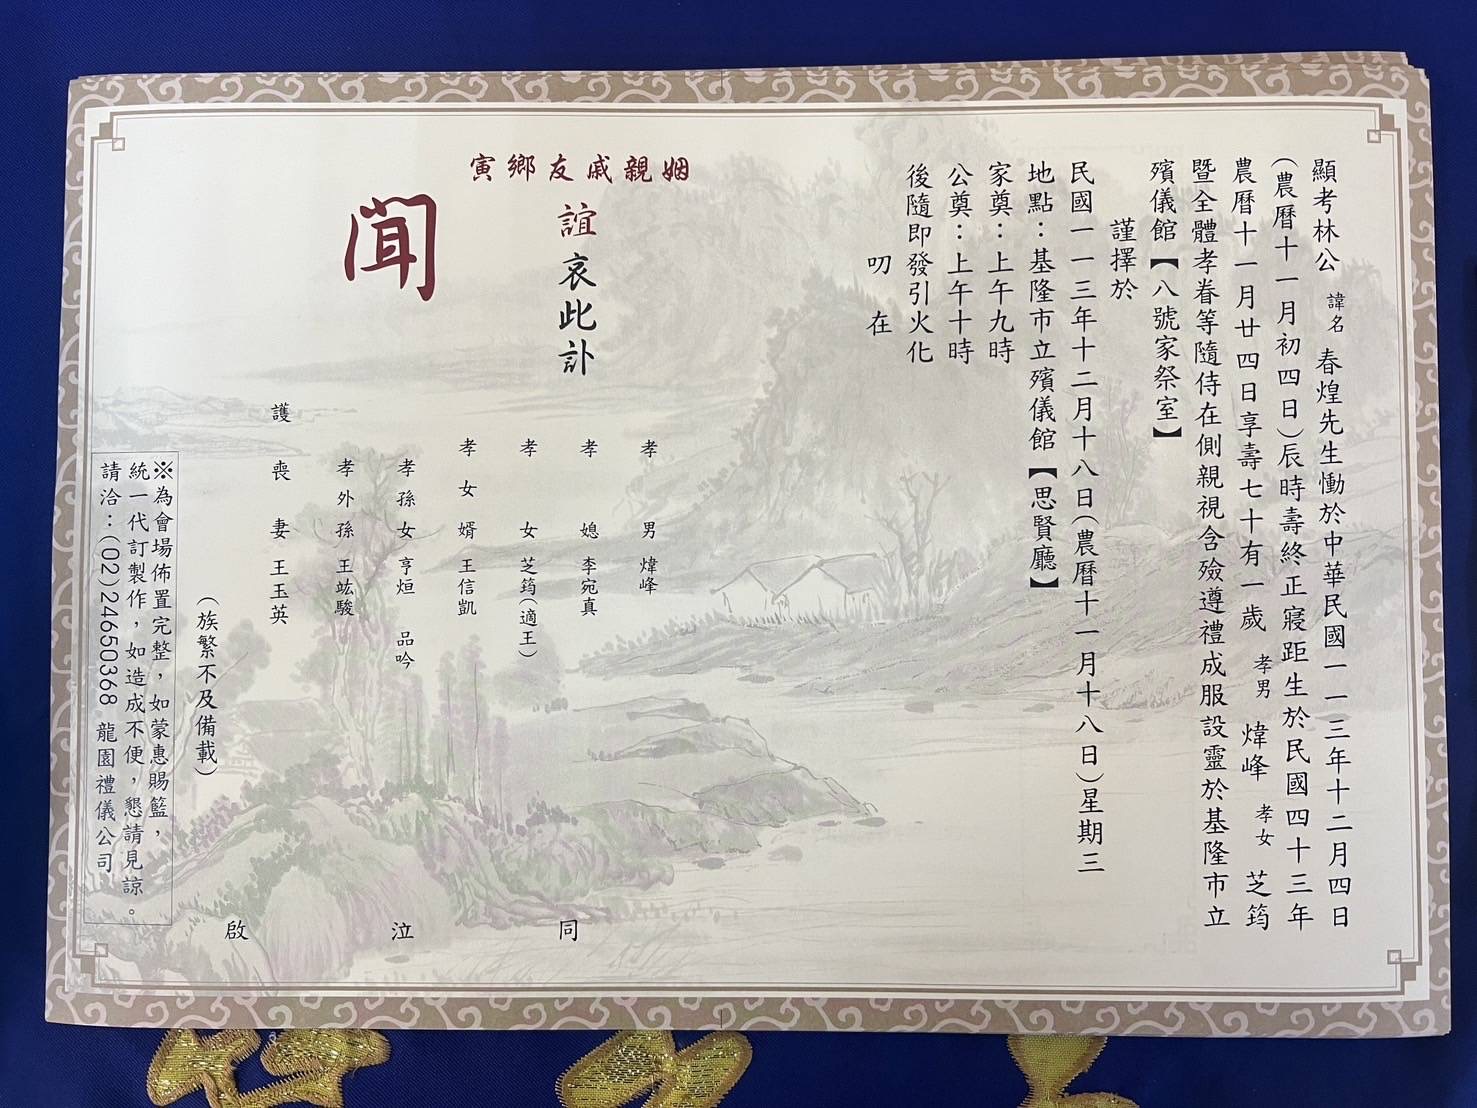 顯考林公 諱名 春煌先生慟於中華民國一一三年十二月四日
(農曆十一月初四日)辰時壽終正寢距生於民國四十三年
農曆十一月廿四日享壽七十有一歲 孝男 煒峰 孝女 芝筠
暨全體孝眷等隨侍在側親視含殮遵禮成服設靈於基隆市立
殯儀館【八號家祭室】
謹擇於
民國一一三年十二月十八日(農曆十一月十八日)星期三
地點：基隆市立殯儀館【思賢廳】
家奠：上午九時
公奠：上午十時
後隨即發引火化
叨在
姻親戚友鄉寅
誼哀此訃
聞
孝男 煒峰
孝媳 李宛真
孝女 芝筠(適王)
孝女婿 王信凱
孝孫女 亨烜 品吟
孝外孫 王竑駿
護喪妻 王玉英
(族繁不及備載)
同泣啟
※為會場佈置完整，如蒙惠賜籃，
統一代訂製作，如造成不便，懇請見諒。
請洽：(02)24650368 龍園禮儀公司